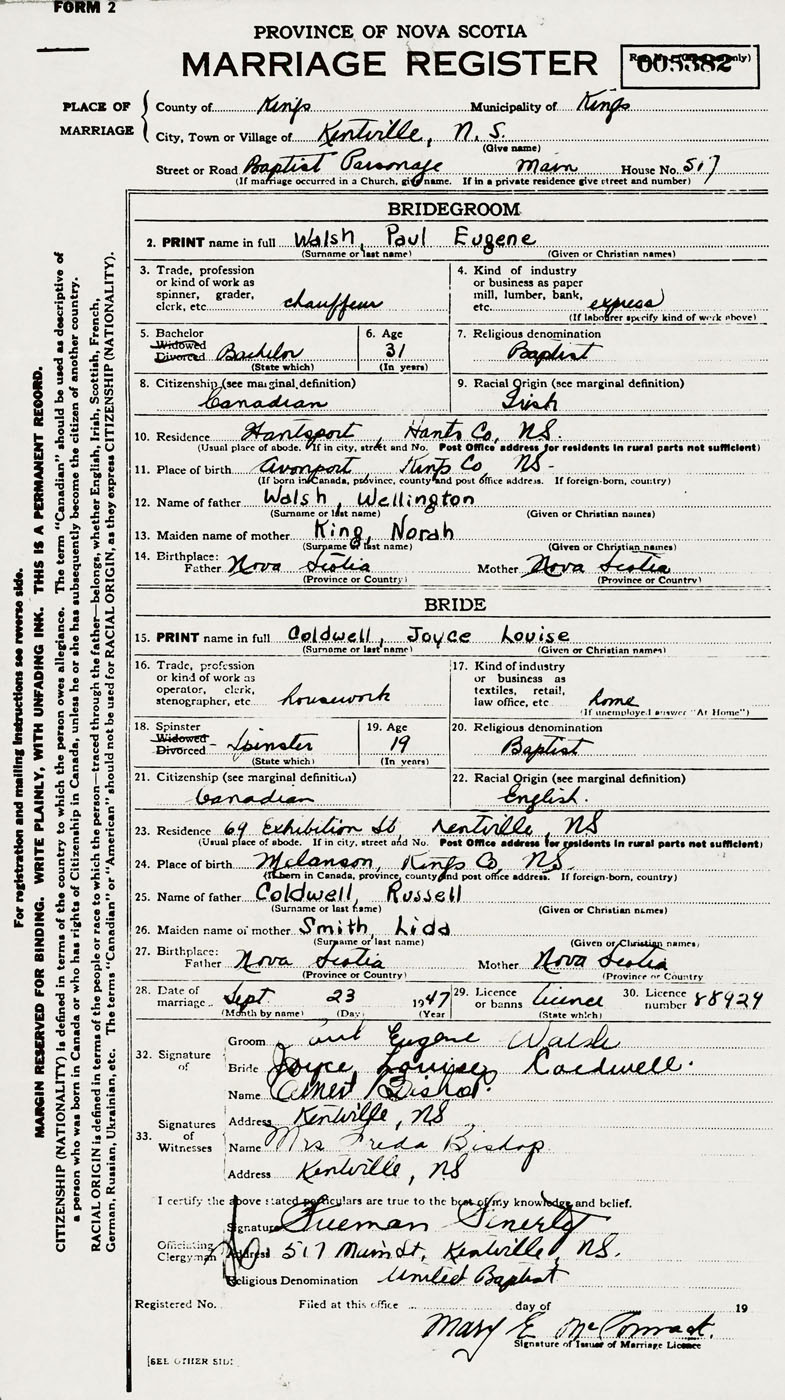 FORM 2
PROVINCE OF NOVA SCOTIA
MARRIAGE REGISTER
005382
PLACE OF MARRIAGE
County of Kings Municipality of Kings
City, Town or Village of Kentville, N. S.
(Give name)
Street or Road Baptist Parsonage Main House No. 517
(If marriage occurred in a Church, give name. If in a private residence give street and number)
BRIDEGROOM
2. PRINT name in full Walsh, Paul Eugene
(Surname or last name) (Given or Christian names)
3. Trade, profession or kind of work as spinner, grader, clerk, etc. chauffeur
4. Kind of industry or business as paper mill, lumber, bank, etc. express
(If labourer specify kind of work above)
5. Bachelor Widowed Divorced Bachelor
(State which)
6. Age 31
(In years)
7. Religious denomination
Baptist
8. Citizenship (see marginal definition)
Canadian
9. Racial Origin (see marginal definition)
Irish
10. Residence Hantsport, Hants Co, NS.
(Usual place of abode. If in city, street and No. Post Office address for residents in rural parts not sufficient)
11. Place of birth Avonport, Kings Co, NS-
(If born in Canada, province, county and post office address. If foreign-born, country)
12. Name of father Walsh, Wellington
(Surname or last name) (Given or Christian names)
13. Maiden name of mother King, Norah
(Surname or last name) (Given or Christian names)
14. Birthplace: Father Nova Scotia Mother Nova Scotia
(Province or Country) (Province or Country)
BRIDE
15. PRINT name in full Coldwell, Joyce Louise
(Surname or last name) (Given or Christian names)
16. Trade, profession or kind of work as operator, clerk, stenographer, etc housework
17. Kind of industry or business as textiles, retail, law office, etc home
(If unemployed answer "At Home")
18. Spinster Widowed Divorced - Spinster
(State which)
19. Age 19
(In years)
20. Religious denomination
Baptist
21. Citizenship (see marginal definition)
Canadian
22. Racial Origin (see marginal definition)
English.
23. Residence 69 Exhibition St, Kentville, NS
(Usual place of abode. If in city, street and No. Post Office address for residents in rural parts not sufficient)
24. Place of birth Melanson, Kings Co, NS.
(If born in Canada, province, county and post office address. If foreign-born, country)
25. Name of father Coldwell, Russell
(Surname or last name) (Given or Christian names)
26. Maiden name of mother Smith, Lida
(Surname or last name) (Given or Christian names)
27. Birthplace: Father Nova Scotia Mother Nova Scotia
(Province or Country) (Province or Country
28. Date of marriage Sept 23 1947
(Month by name) (Day) (Year
29. Licence or banns licence
(State which)
30. Licence number 88924
32. Signature of
Groom Paul Eugene Walsh
Bride Joyce Louise Coldwell.
33. Signatures of Witnesses
Name Bishop.
Address Kentville, NS
Name Mrs Freda Bishop
Address Kentville, NS
I certify the above stated particulars are true to the best of my knowledge and belief.
Officiating Clergyman
Signature Freeman
Address 517 Main St, Kentville, NS.
Religious Denomination United Baptist
Registered No. Filed at this office day of 19
Mary E.
Signature of Issuer of Marriage Licence
[SEE OTHER SIDE
For registration and mailing instructions see reverse side.
MARGIN RESERVED FOR BINDING. WRITE PLAINLY, WITH UNFADING INK. THIS IS A PERMANENT RECORD.
CITIZENSHIP (NATIONALITY) is defined in terms of the country to which the person owes allegiance. The term "Canadian" should be used as descriptive of
a person who was born in Canada or who has rights of Citizenship in Canada, unless he or she has subsequently become the citizen of another country.
RACIAL ORIGIN is defined in terms of the people or race to which the person—traced through the father—belongs, whether English, Irish, Scottish, French,
German, Russian, Ukrainian, etc. The terms "Canadian" or "American" should not be used for RACIAL ORIGIN, as they express CITIZENSHIP (NATIONALITY).